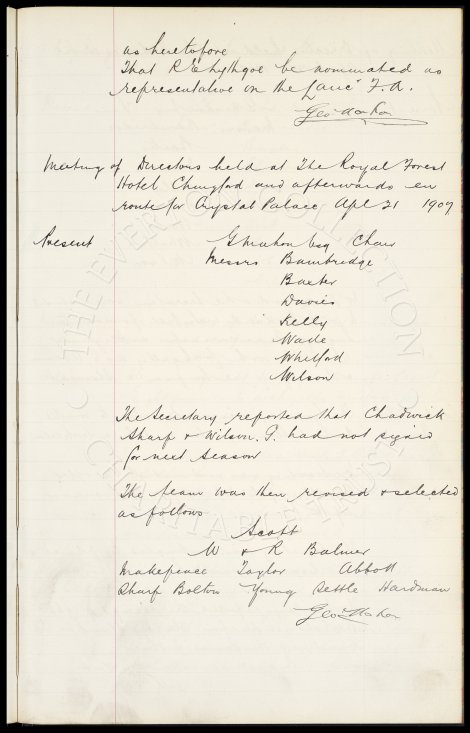 as heretofore
That R E Lythgoe be nominated as
representative on the Lanc F.A.
Geo Mahon
Meeting of Directors held at The Royal Forest
Hotel Chingford and afterwards en
route for Crystal Palace Apl 21 1907
Present G Mahon Esq Chair
Messrs Bainbridge
Baxter
Davies
Kelly
Wade
Whitford
Wilson
The Secretary reported that Chadwick
Sharp & Wilson. G. had not signed
for next season
The team was then revised & selected
as follows
Scott
W & R Balmer
Makepeace Taylor Abbott
Sharp Bolton Young Settle Hardman
Geo Mahon
THE EVERTON COLLECTION
CHARITABLE TRUST